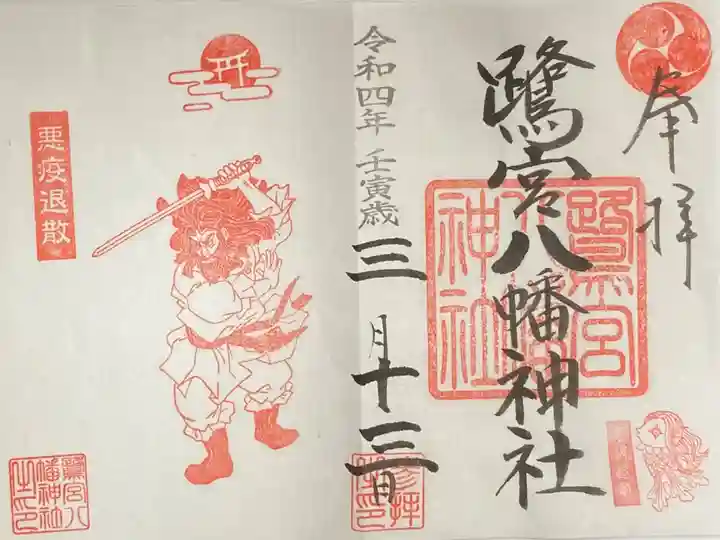 奉拝
鷺宮八幡神社
鷺宮八幡神社
令和四年 壬寅歳
三月十三日
参拝
悪疫退散
鷺宮八
幡神社
之印